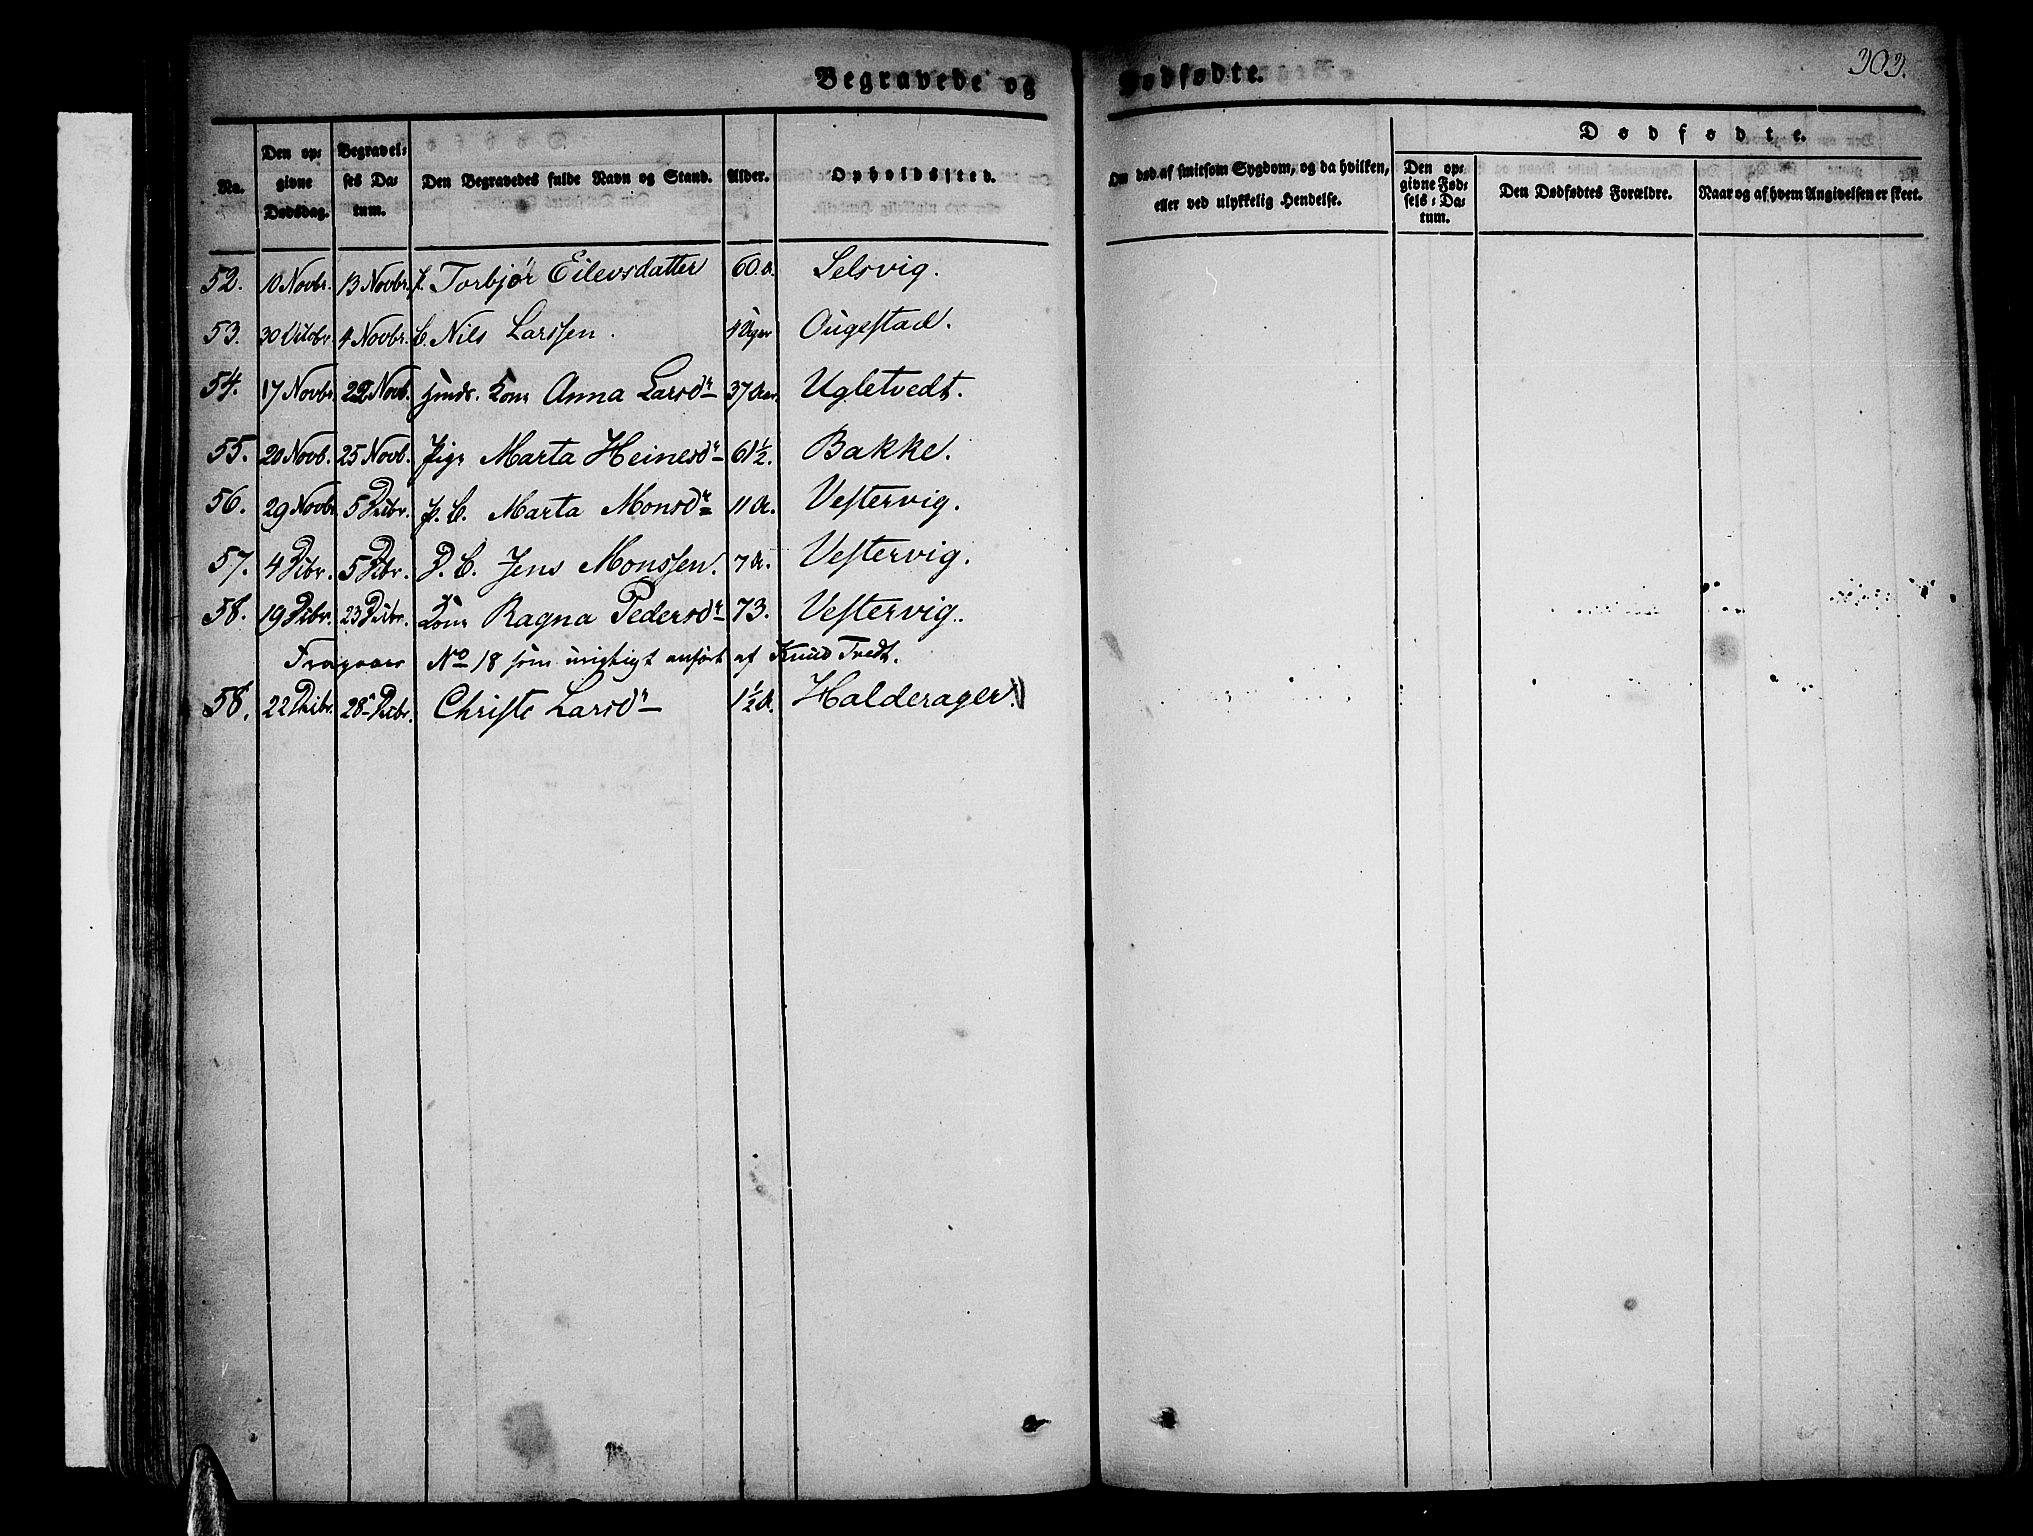 303.
Begravede og Dødfødte.
No. Den opgivne Dødsdag. Begravelses Datum. Den Begravedes fulde Navn og Stand. Alder. Opholdssted. Om død af smitsom Sygdom, og da hvilken, eller ved ulykkelig Hendelse. Dødfødte. Den opgivne Fødsels-Datum. Den Dødfødtes Forældre. Naar og af hvem Angivelsen er skeet.
52. 10 Novbr. 13 Novbr. Torbjør Eilevsdatter 60 Selsvig.
53. 30 4 Novbr. Nils Larssen. Ougestad.
54. 17 Novbr. 22 Novb. Kone Anna Larsdr 37 Ugletvedt.
55. 20 Novb. 25 Novb. Pige Marta Heinesdr 61½. Bakke.
56. 29 Novbr. 5 P. C. Marta Monsdr 11 A. Vestervig.
57. 4 5 D. C. Jens Monssen. 7 A. Vestervig.
58. 19 23 Kone Ragna Pedersdr 73. Vestervig.
No 18 som urigtigt anført af Knud Tvedt.
58. 22 28 Christe Larsdr 1½ A. Halderager.